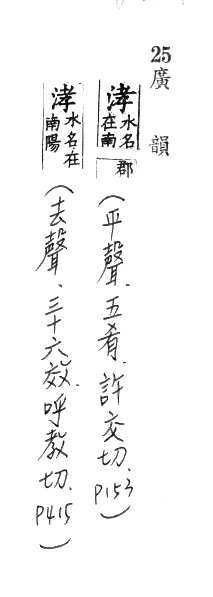 25廣韻
涍水名在南郡(平聲、五肴、許交切、P153)
涍水名在南陽(去聲、三十六效、呼教切、P415)